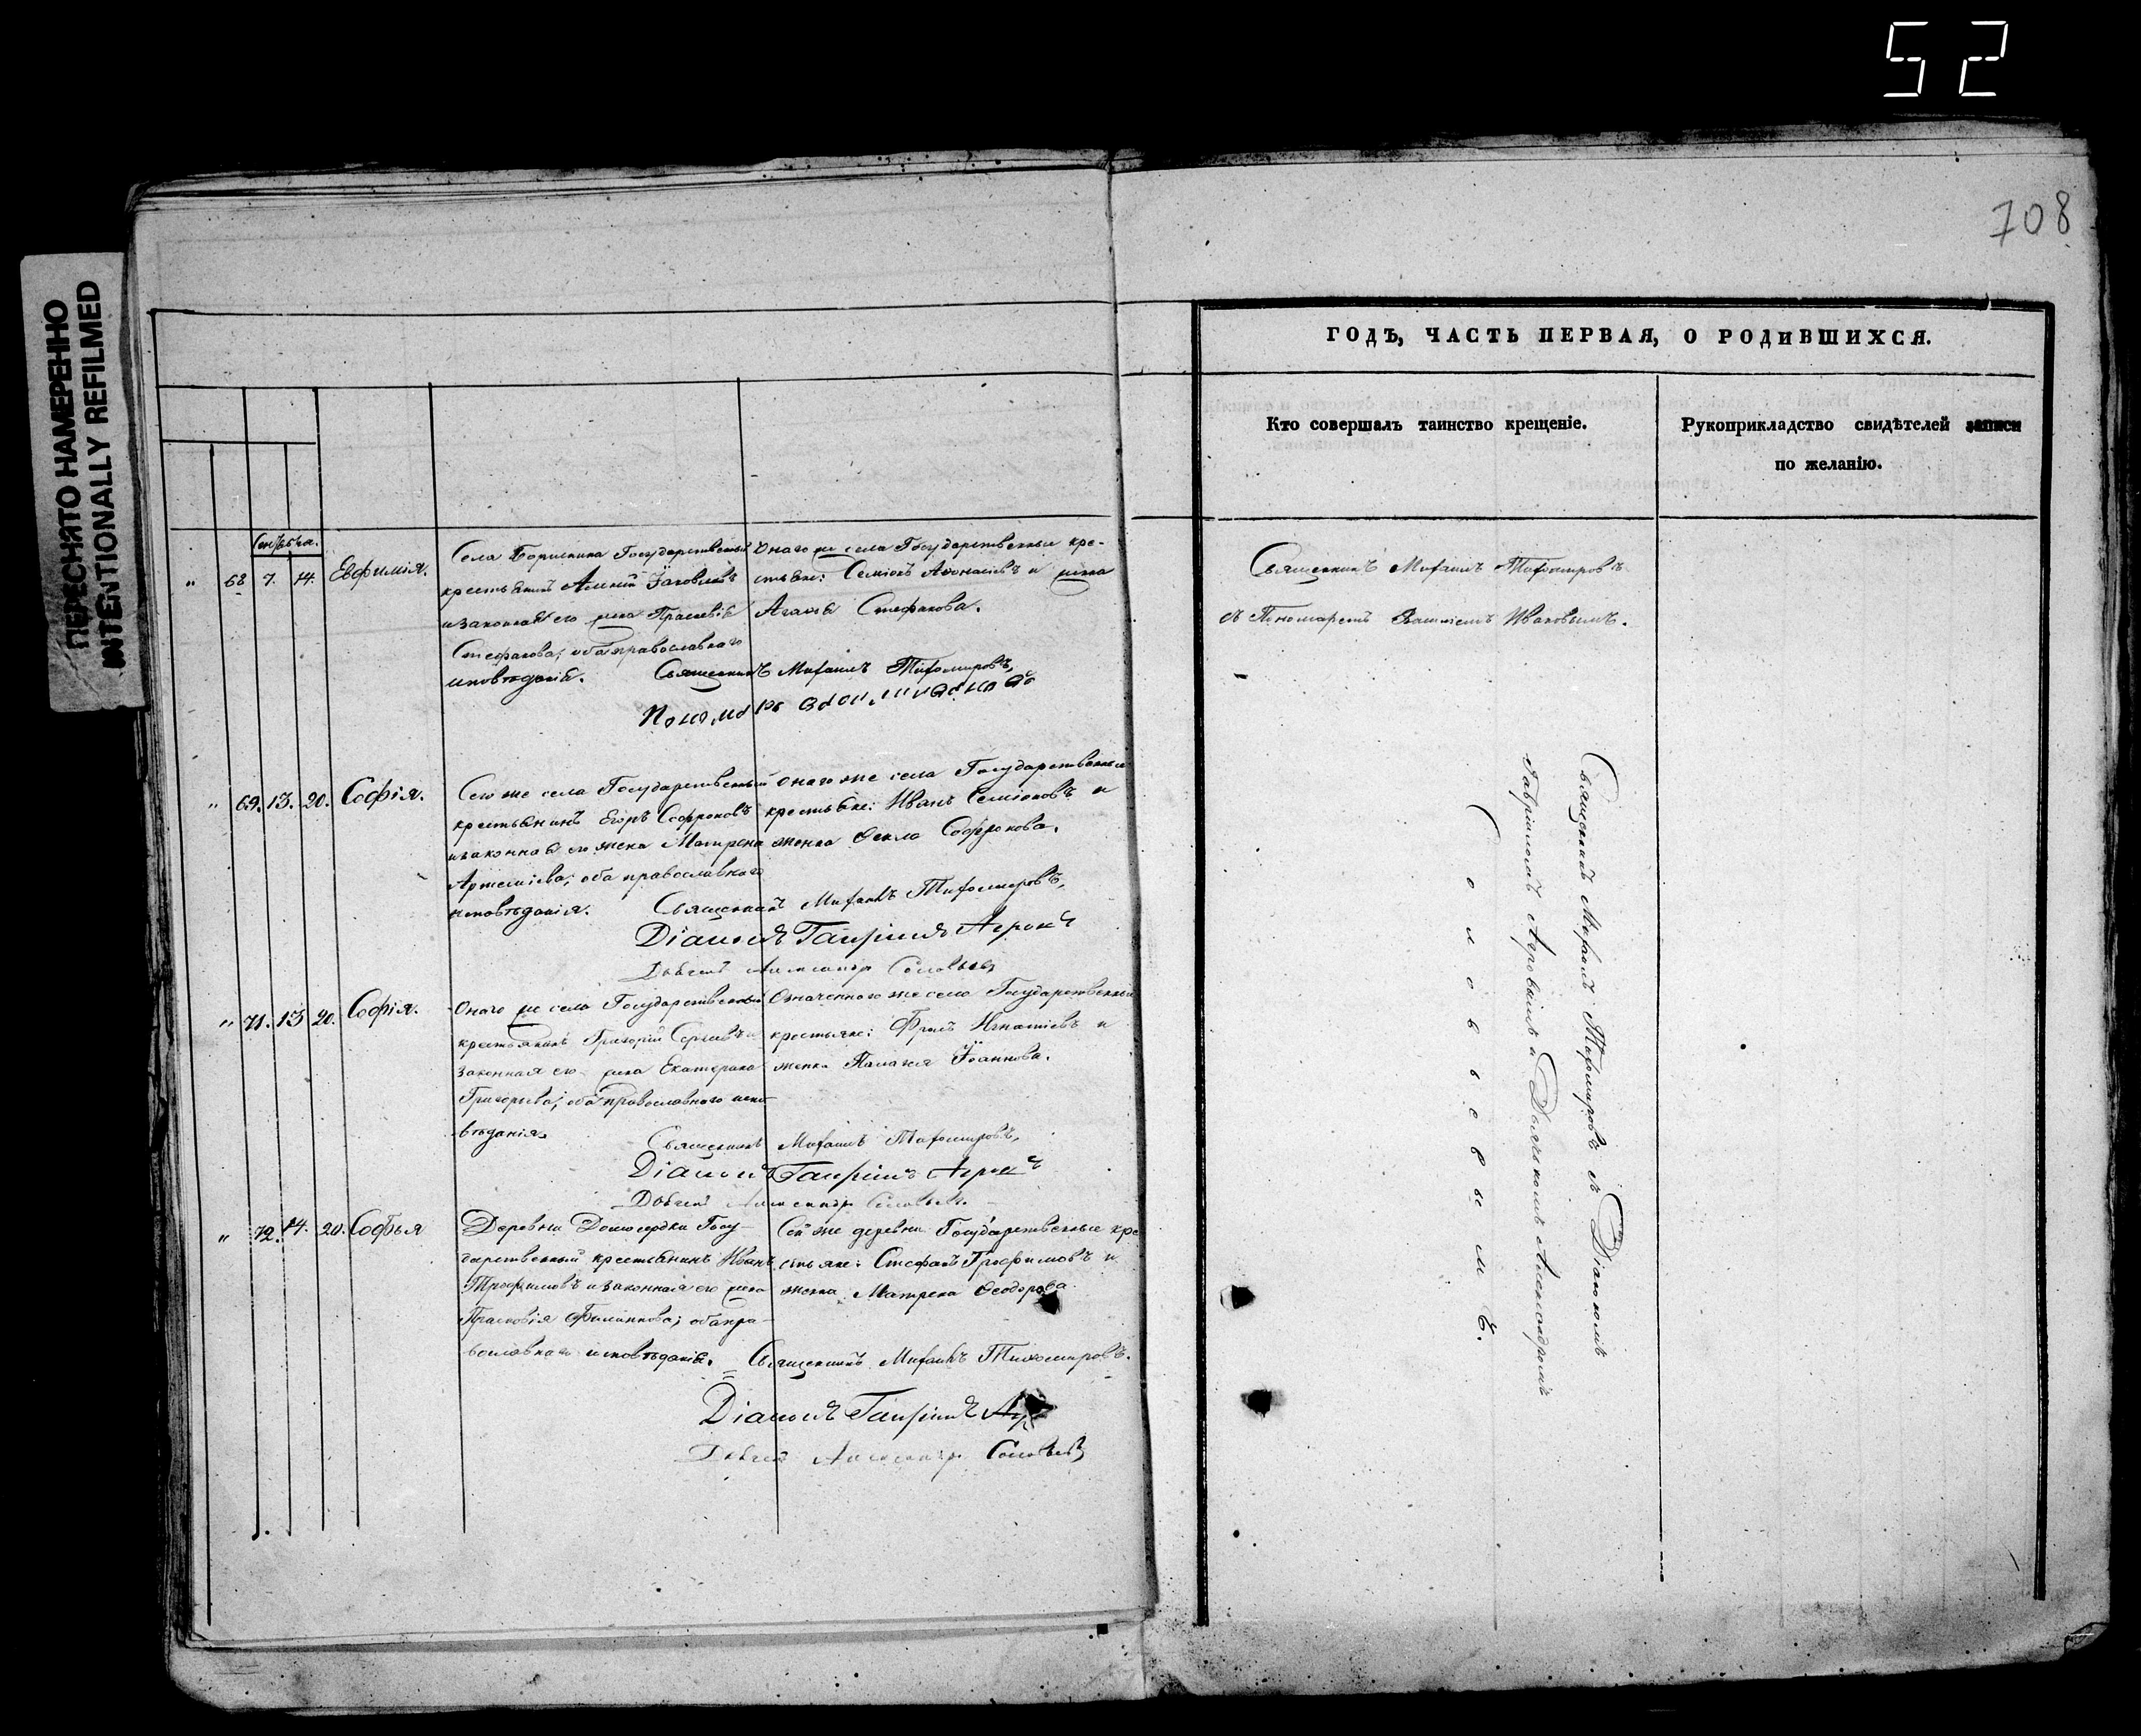 52
708
ПЕРЕСНЯТО НАМЕРЕННО
INTENTIONALLY REFILMED
ГОДЪ, ЧАСТЬ ПЕРВАЯ, О РОДИВШИХСЯ.
Кто совершалъ таинство крещеніе.
Рукоприкладство свидѣтелей записи
по желанію.
" 68 7. 14. Евфимія.
Села Государственный
крестьянинъ
и законная его жена Праскевія
Стефанова; оба православнаго
исповѣданія.
Онаго же села Государственные кре-
стьяне: Семіонъ Аѳонасіевъ и жена
Агаѳія Стефанова.
Священникъ Михаилъ Тихомировъ,
Священникъ Михаилъ Тихомировъ
съ Пономаремъ Ивановымъ.
" 69. 13. 20. Софія.
Сего же села Государственный
крестьянинъ Егоръ Софроновъ
и законная его жена Матрена
Артеміева; оба православнаго
исповѣданія.
Онаго же села Государственные
крестьяне: Иванъ Семіоновъ и
женка Ѳекла Софронова.
Священникъ Михаилъ Тихомировъ,
Діаконъ Гавріилъ
Дьячекъ Александръ Соловьевъ
" 71. 13 20. Софія.
Онаго же села Государственный
крестьянинъ Григорій Сергіевъ и
законная его жена Екатерина
Григорьева; оба православнаго испо-
вѣданія.
Означенного же села Государственные
крестьяне: Фролъ Игнатіевъ и
женка Палагея Іоаннова.
Священникъ Михаилъ Тихомировъ,
Діаконъ Гавріилъ
Дьячекъ Александръ Соловьевъ.
" 72. 14. 20. Софья
Деревни Госу-
дарственный крестьянинъ Иванъ
Трофимовъ и законная его жена
Прасковія Филиппова; оба пра-
вославнаго исповѣданія.
Сей же деревни Государственные кре
стьяне: Стефанъ Трофимовъ и
женка Матрена Ѳеодорова
Священникъ Михаилъ Тихомировъ.
Діаконъ Гавріилъ
Дьячекъ Александръ Соловьевъ
Священникъ Михаилъ Тихомировъ съ Діакономъ
Гавріиломъ и Дьячкомъ Александромъ
Соловьевымъ.